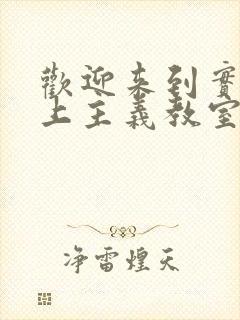 歡迎來到實
上主義教室
净雷煌天